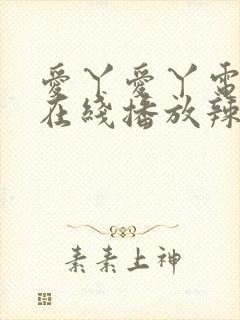 爱丫爱丫電
在綫播放辣
素素上神